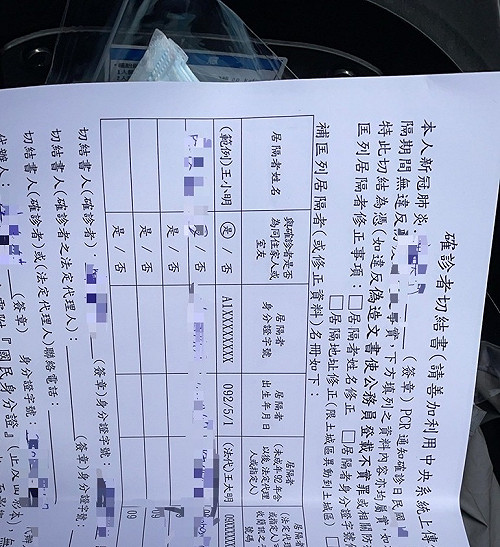 確診者切結書(請善加利用中央系統上傳
本人新冠肺炎 (簽章) PCR 通知確診日民國
隔期間無違反 事實,下方填列之資料內容亦均屬實,如
特此切結為憑(如違反偽造文書使公務員登載不實罪或相關防
匡列居隔者修正事項:□居隔者姓名修正 □居隔者身分證字號
□居隔地址修正(限土城區異動到土城區)
補匡列居隔者(或修正資料)名冊如下:
居隔者姓名
與確診者是否為同住家人或室友
居隔者身分證字號
居隔者出生年月日
居隔者(未成年92年含以後,法定代理人或指定人)
(法定或指定收簡訊之號碼
(範例)王小明
是 / 否
A1XXXXXXXX
092/5/1
(法代)王大明
09XXXXXX
/ 否
是 / 否
09
是 / 否
09
是 / 否
切結書人(確診者) (簽章)身分證字號:
切結書人(確診者之法定代理人): (簽章)身分證字號:
切結書人(確診者)或(法定代理人)聯絡電話:
代辦人: (簽章) 身分證字號:
『國民身分證』(上入四份)